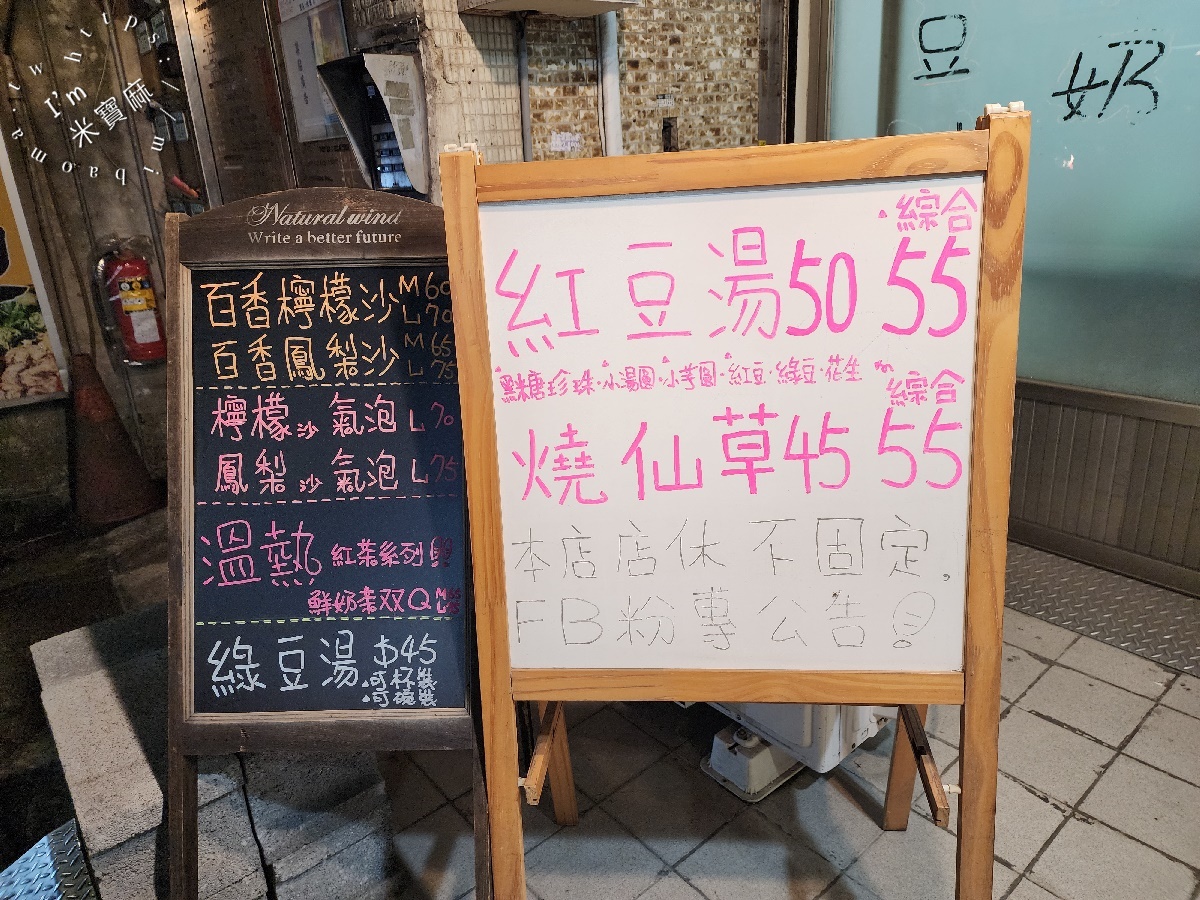 https://mibaomam.tw
I'm
米寶麻
豆 奶
Natural wind
Write a better future
百香檸檬沙 M60
L70
百香鳳梨沙 M65
L75
檸檬沙氣泡 L70
鳳梨沙氣泡 L75
溫熱 紅茶系列
鮮奶素双Q M
L
綠豆湯 $45
·可杯裝
·可碗裝
·綜合
紅豆湯50 55
黑糖珍珠·小湯圓·小芋圓·紅豆·綠豆·花生
綜合
燒仙草45 55
本店店休不固定,
FB粉專公告!